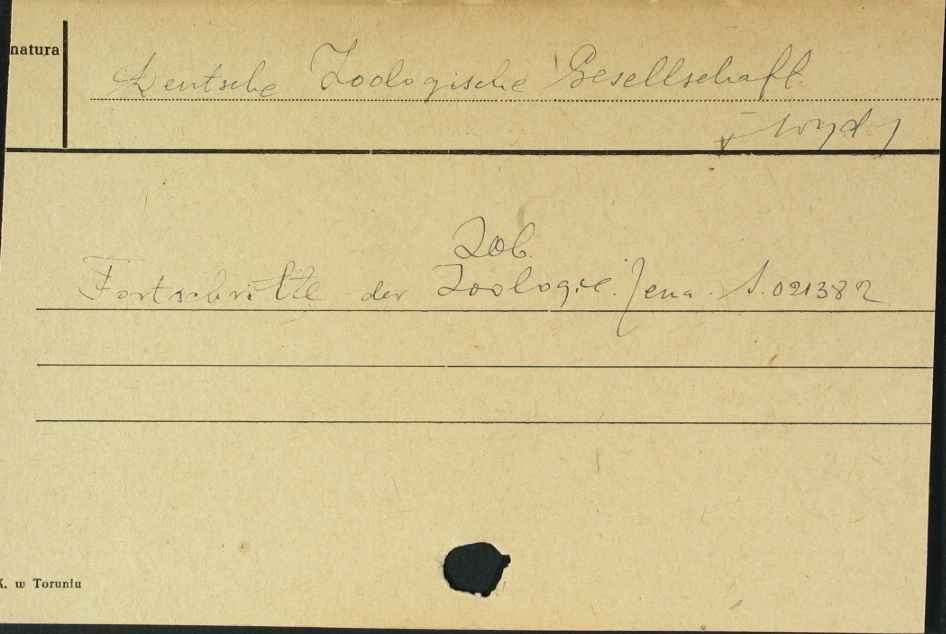 natura
Deutsche Zoologische Gesellschaft.
Zob.
Fortschritte der Zoologie. Jena. S.021382
K. w Toruniu